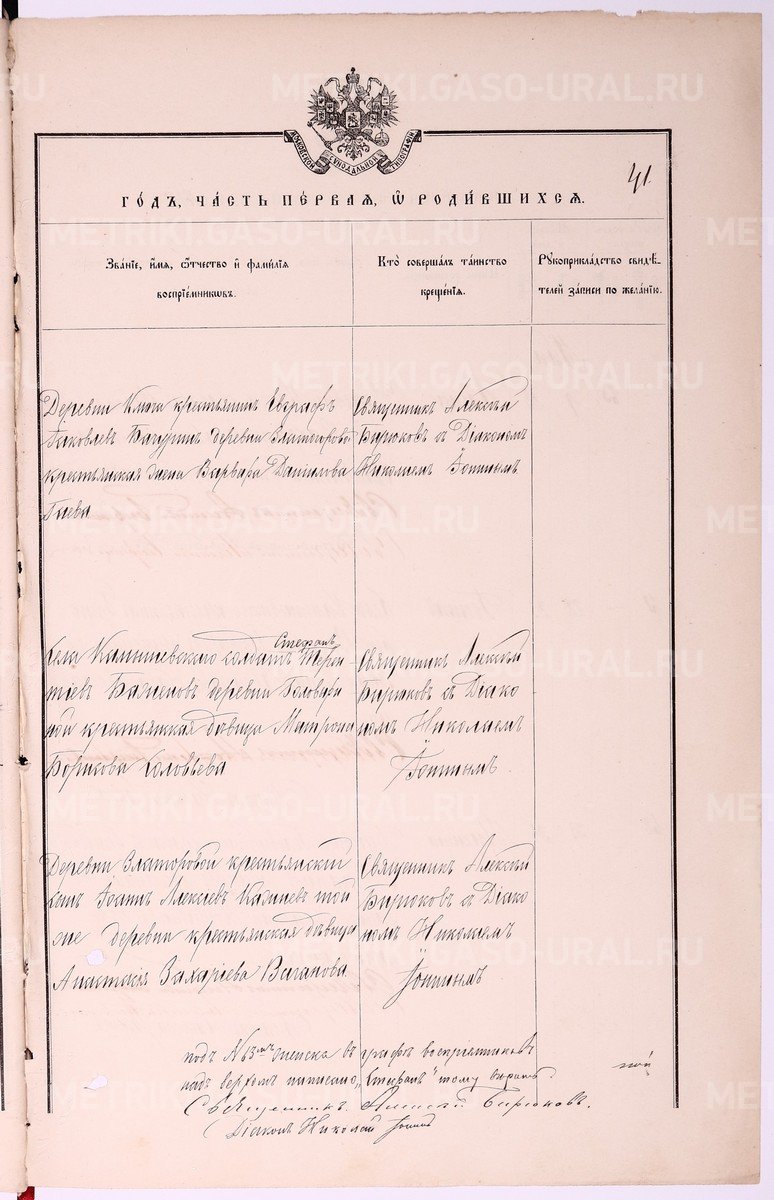 МОСКОВСКОЙ СѴНОДАЛЬНОЙ ТИПОГРАФІИ
41.
ГО́ДЪ, ЧА́СТЬ ПЕ́РВАЯ, Ѡ҆ РОДИ́ВШИХСЯ.
Зва́нїе, и҆́мя, ѻ҆́тчество и҆ фами́лїя
воспрїе́мниковъ.
Кто̀ соверша́лъ та́инство
креще́нїя.
Рꙋкоприкла́дство свидѣ́-
телей за́писи по жела́нїю.
Деревни крестьянинъ Евграфъ
Іаковлевъ Бачуринъ деревни Златогорово
крестьянская жена Варвара Даніилова
Гаева
Священникъ Алексѣй
Бирюковъ съ Діакономъ
Николаемъ Іонинымъ
Села Камышевскаго солдатъ Стефанъ Терен
тіевъ Баженовъ деревни
ной крестьянская дѣвица Матрона
Борисова Соловьева
Священникъ Алексѣй
Бирюковъ съ Діако
номъ Николаемъ
Іонинымъ
Деревни Златогоровой крестьянскій
сынъ Іоаннъ Алексіевъ той
же деревни крестьянская дѣвица
Анастасія Захаріева Ваганова
Священникъ Алексѣй
Бирюковъ съ Діако
номъ Николаемъ
Іонинымъ
подъ № въ графѣ воспріемниковъ
надъ верхомъ написано „Стефанъ“ тому вѣрить.
Священникъ Алексѣй Бирюковъ.
Діаконъ Николай Іонинъ
METRIKI.GASO-URAL.RU